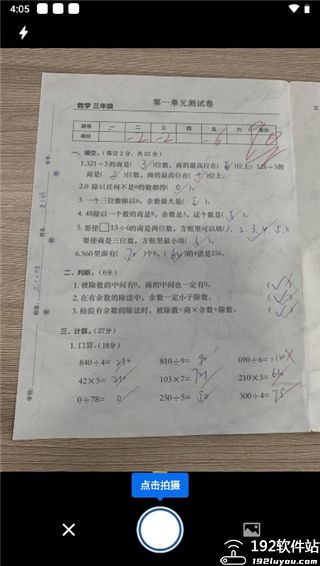 4:05
数学 三年级
第一单元测试卷
题号 一 二 三 四 五 六 总分
得分 -2 -2 -6
一、填空。(每空2分,共22分)
1.321÷3的商是(3)位数,商的最高位在( )位上;126÷3的
商是(2)位数,商的最高位在( )位上。
2.0 除以任何不是0的数都得(0)。
3.一个三位数除以6,余数最大是(5)。
4.48除以一个数的商是9,余数是3,这个数是(5)。
5.要使□13÷6的商是两位数,方框里可以填(1、2、3、4、5),
要使商是三位数,方框里最小填(6)。
6.560里面有(70)个8,( )的4倍是256。
二、判断。(6分)
1.被除数的中间有0,商的中间也一定有0。
2.在有余数的除法中,余数一定小于除数。
3.检验有余数的除法时,被除数=商×余数+除数。
三、计算。(27分)
1.口算。(18分)
840÷4=210 810÷9=90 690÷6=
42×5=210 103×7=721 210×3=630
0÷78=0 250÷5=50 300÷4=75
姓名:
班级:
学校:
点击拍摄
192软件站
192luyou.com